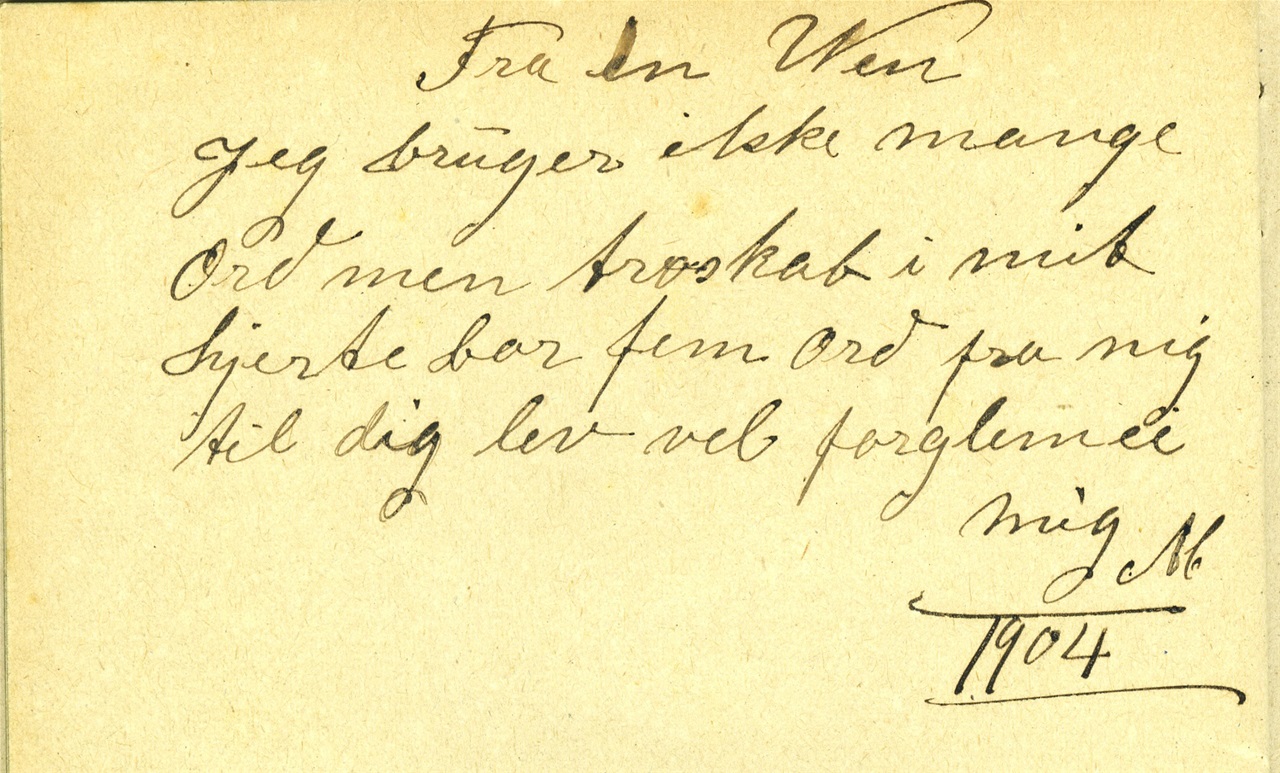 Fra en Wen
Jeg brūger ikke mange
Ord men troskab i mit
hjerte bor fem Ord fra mig
til dig lev vel forglem ei
mig M
1904